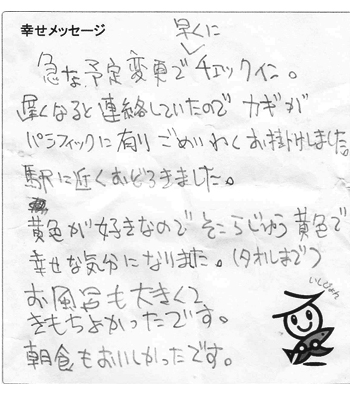 幸せメッセージ
早くに
急な予定変更でチェックイン。
遅くなると連絡していたのでカギが
パシフィックに有りごめいわくお掛けしました。
駅に近くおどろきました。
黄色が好きなのでそこらじゅう黄色で
幸せな気分になりました。(タオルまで)
お風呂も大きくて
きもちよかったです。
朝食もおいしかったです。